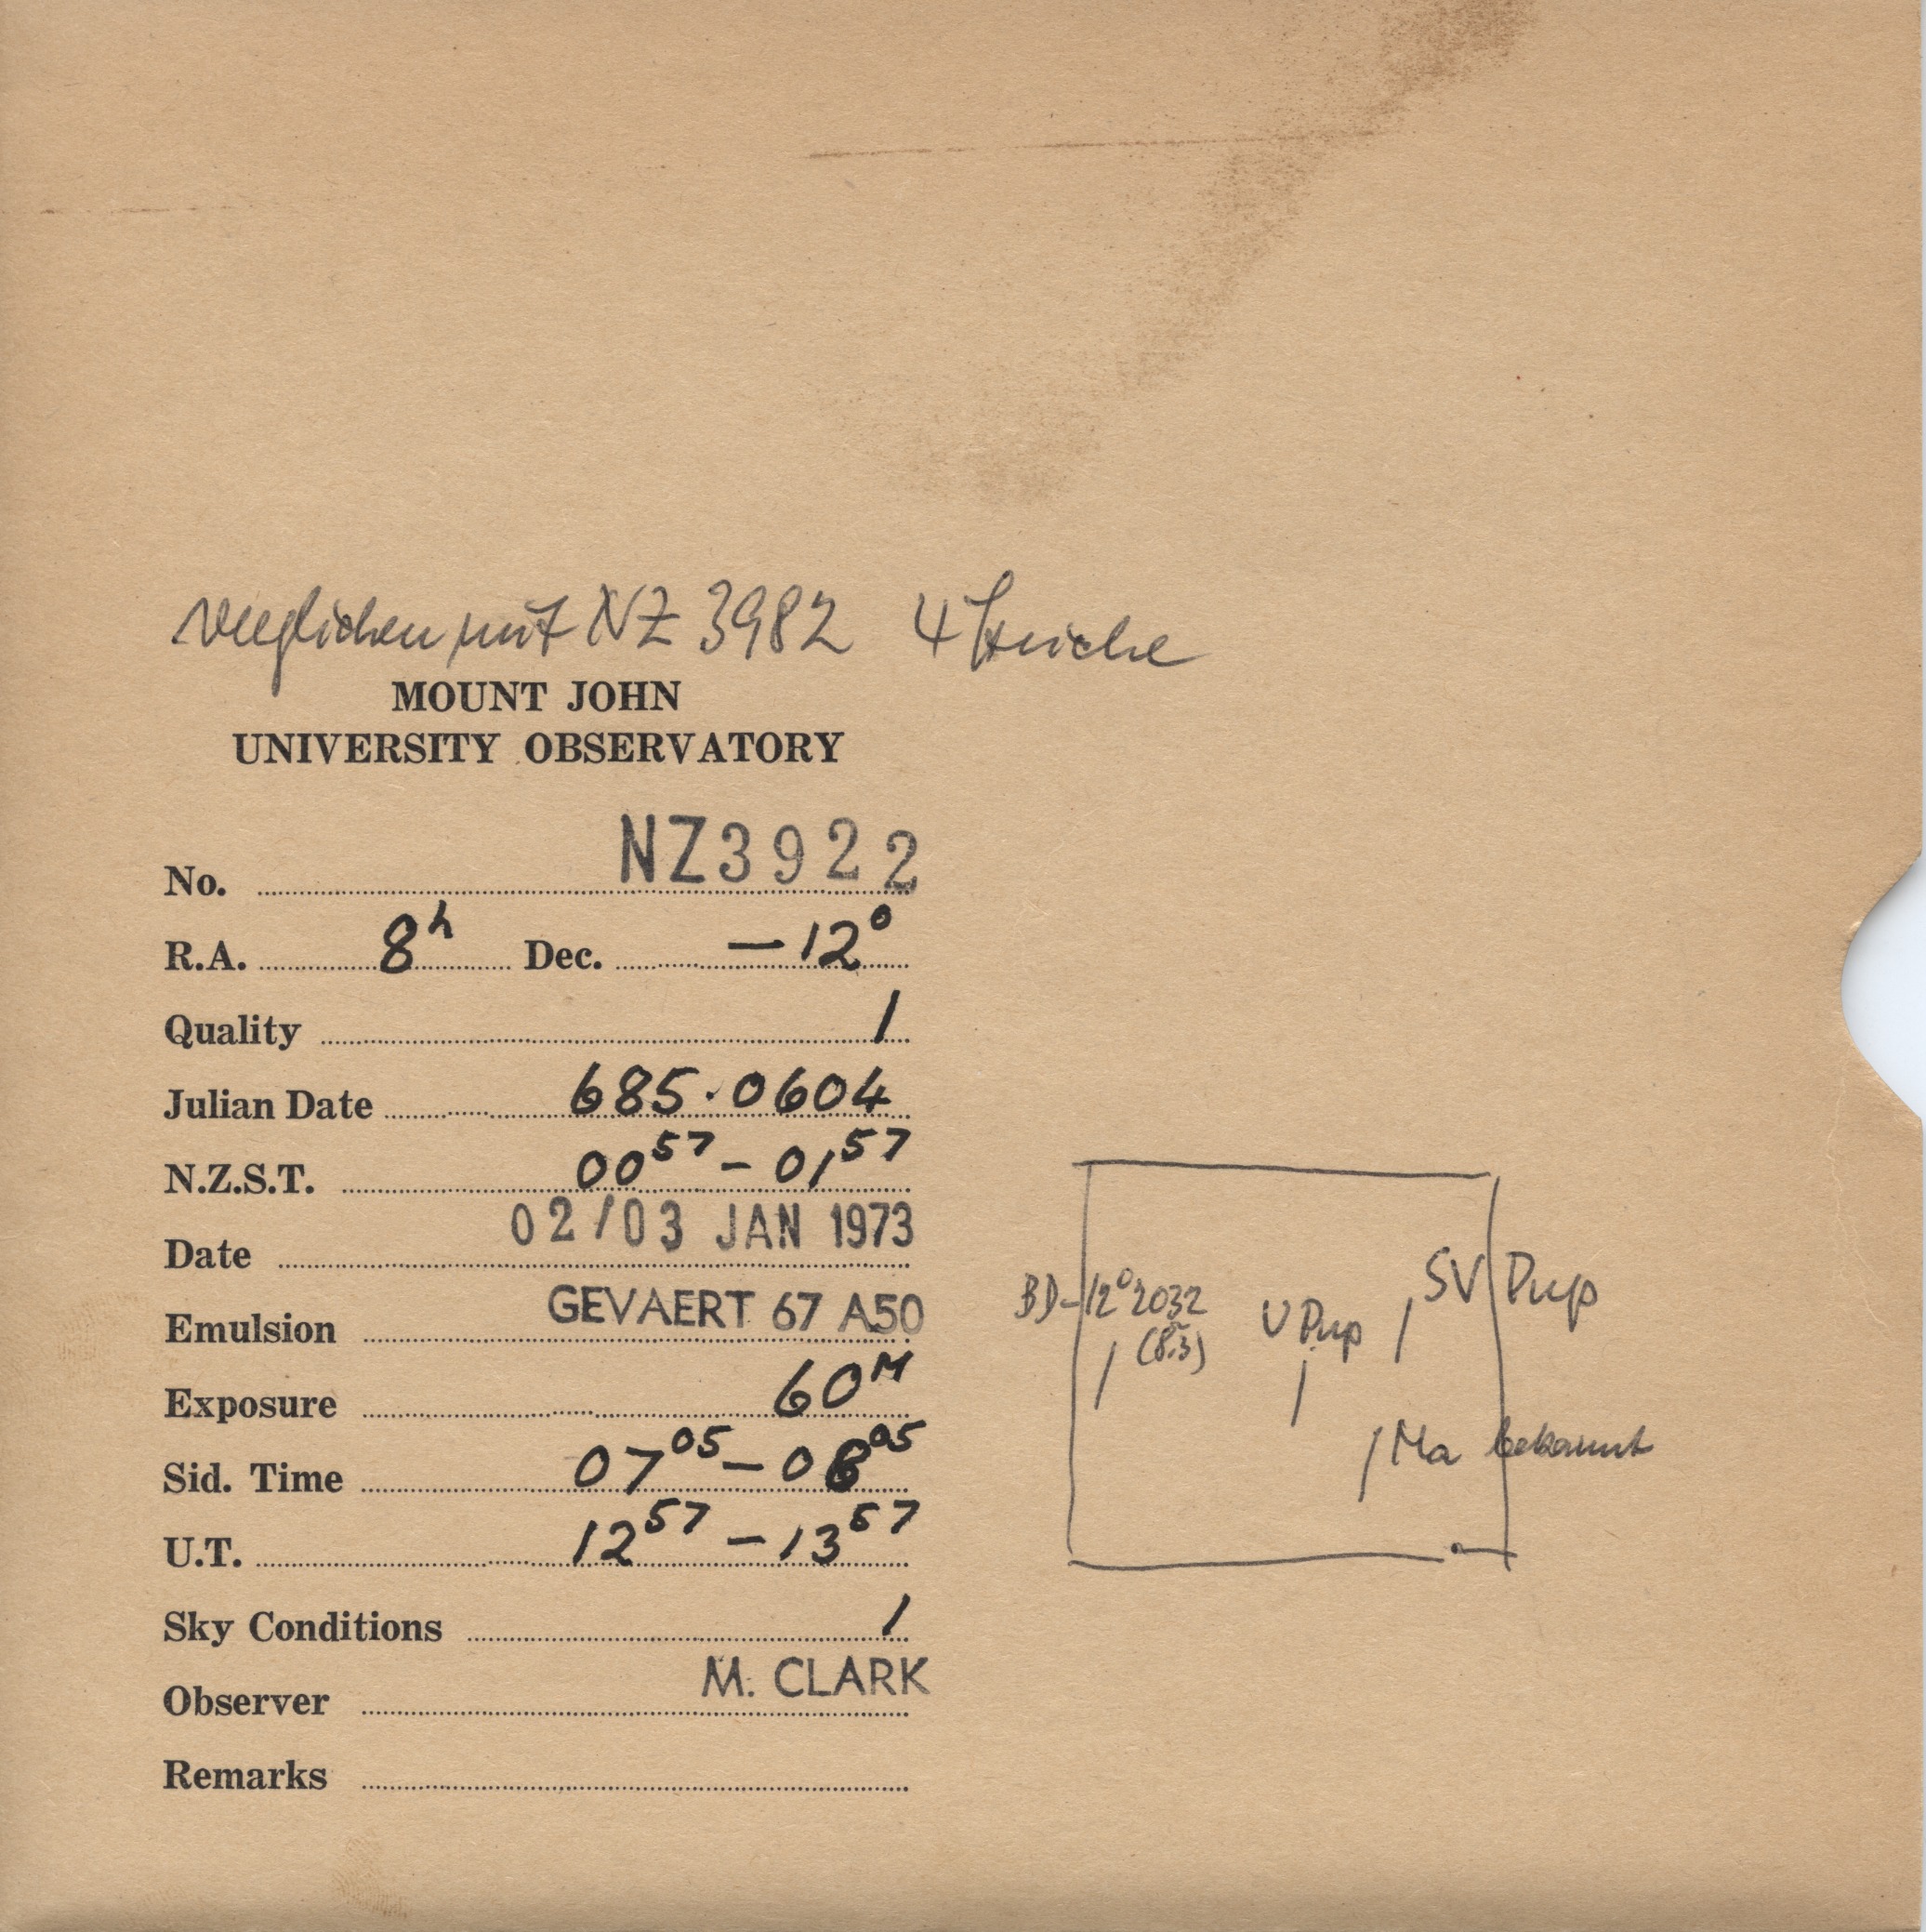 verglichen mit NZ 3982 4 Striche
MOUNT JOHN
UNIVERSITY OBSERVATORY
No. NZ3922
R.A. 8h Dec. -12°
Quality 1
Julian Date 685.0604
N.Z.S.T. 00 57 - 01 57
Date 02/03 JAN 1973
Emulsion GEVAERT 67 A50
Exposure 60M
Sid. Time 07 05 - 08 05
U.T. 12 57 - 13 57
Sky Conditions 1
Observer M. CLARK
Remarks
SV Pup
BD-12°2032
U Pup
(8.3)
Ma bekannt